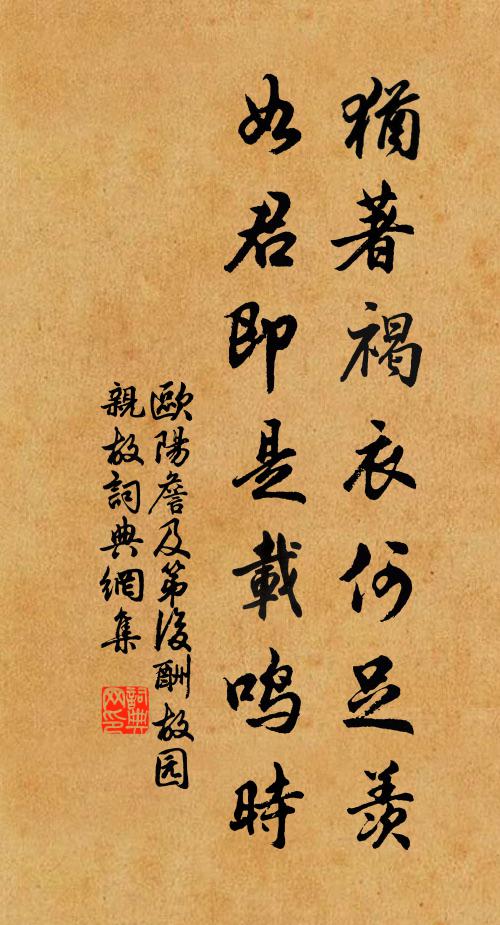 猶著褐衣何足羨
如君即是載鳴時
歐陽詹及第後酬故园
親故詞典網集
詞典网印